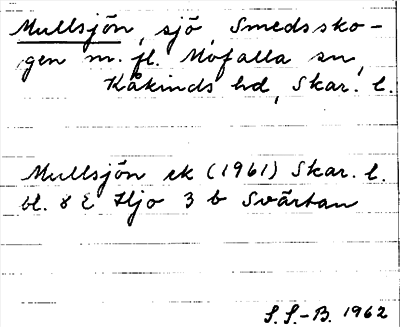 Mullsjön, sjö, Smedssko-
gen m. fl. Mofalla sn,
Kåkinds hd, Skar. l.
Mullsjön ek (1961) Skar. l.
bl. 8 E Hjo 3 b Svärtan
S. S.-B. 1962